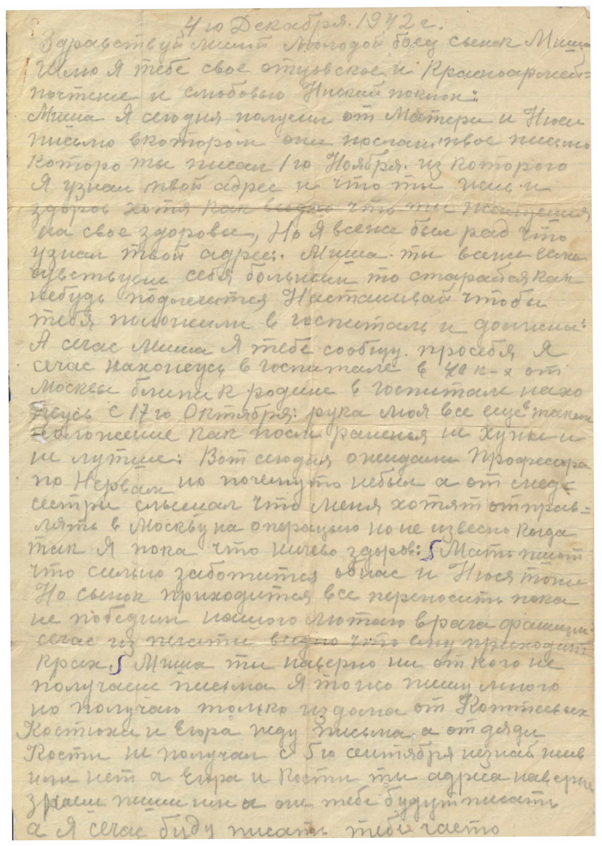 4го Декабря. 1942 г.
Здравствуй милый Молодой боец сынок Миша
Шлю Я тебе свое отцовское и Красноармей=
почтение и с любовью Ниский поклон:
Миша Я сегодня получил от Матери и Нюси
письмо в котором они послали твое письмо
которо ты писал 1го Ноября. из которого
Я узнал твой адрес и что ты жив и
здоров хотя как видно что ты
на свое здоровье, Но Я всеже был рад что
узнал твой адрес. Миша ты если
чувствуеш себя больным то старайся как
небудь подлечится Настаивай чтобы
тебя положили в госпиталь и должны:
А сечас Миша Я тебе сообщу. просебя Я
сечас нахожусь в госпитале в 40 к-х от
Москвы ближе к родине в госпитале нахо
жусь с 17го Октября: рука моя все еще в таком
положение как после раненья не хуже и
не лутше: Вот сегодня ожидали Професора
по Нервам но почемуто небыл а от мед-
сестры слышал что меня хотят отправ-
лять в Москву на операцыю но не извесно когда
так Я пока что ничево здоров: Мать пишет
что сильно заботится о вас и Нюся тоже
Но сынок приходится все переносить пока
не победим нашего лютого врага фашизм-
сечас из печати видно что ему приходит
крах. Миша ты наверно ни от кого не
получаеш письма Я тоже пишу много
но получаю только из дома от
Костюхи и Егора жду письма а от дяди
Кости не получал с 5го сентября незнаю жив
или нет а Егора и Кости ты адреса наверно
знаеш пиши им а они тебе будут писать
а Я сечас буду писать тебе часто